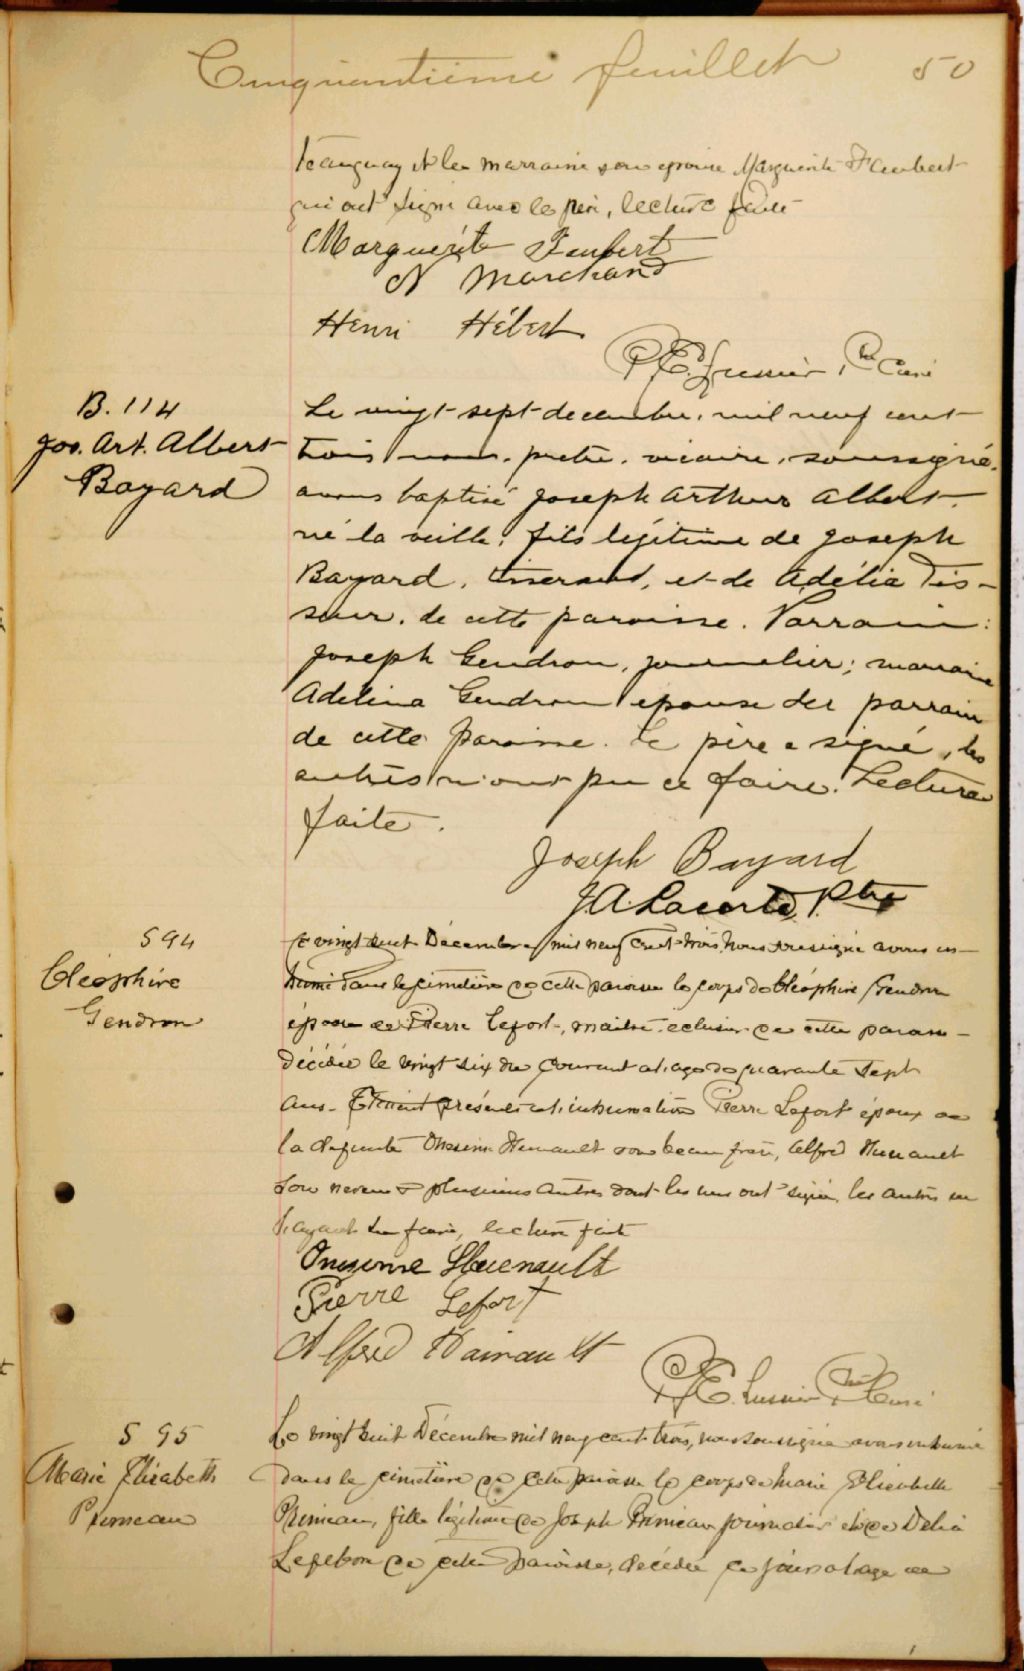 Cinquantième feuillet 50
et la marraine son épouse Marguerite Faubert
qui ont signé avec le père, lecture faite
Marguerite Faubert
N Marchand
Henri Hébert
P.E. Lussier, Ptre Curé
B. 114
Jos. Art. Albert
Bayard
Le vingt-sept decembre, mil neuf cent
trois nous, pretre, vicaire, soussigné,
avons baptisé Joseph Arthur Albert,
né la veille, fils légitime de Joseph
Bayard, tisserand, et de Adélia Tis-
seur, de cette paroisse. Parrain:
Joseph Gendron, journalier; marraine
Adelina Gendron épouse du parrain
de cette paroisse. Le père a signé, les
autres n'ont pu ce faire. Lecture
faite.
Joseph Bayard
J.A. Lacerte Ptre
S 94
Cléophire
Gendron
Le vingt huit Décembre mil neuf cent trois, nous soussigné avons in-
humé dans le cimetière de cette paroisse le corps de Cléophire Gendron
épouse de Pierre Lefort, maître éclusier de cette paroisse
décédée le vingt six du courant à l'age de quarante sept
ans. Etaient présents à l'inhumation Pierre Lefort époux de
la defunte Onesime Henault son beau frère, Alfred Henault
son neveu & plusieurs autres dont les uns ont signé, les autres ne
l'ayant su faire, lecture faite
Onesime Huenault
Pierre Lefort
Alfred Hainault
P.E. Lussier Ptre Curé
S 95
Marie Elisabeth
Primeau
Le vingt huit Décembre mil neuf cent trois, nous soussigné avons inhumé
dans le cimetière de cette paroisse le corps de Marie Elisabeth
Primeau, fille légitime de Joseph Primeau journalier et de Delia
Lefebvre de cette paroisse, décédée ce jour à l'age de